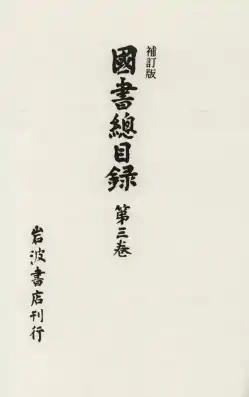 補訂版
國書總目録
第三巻
岩波書店刊行